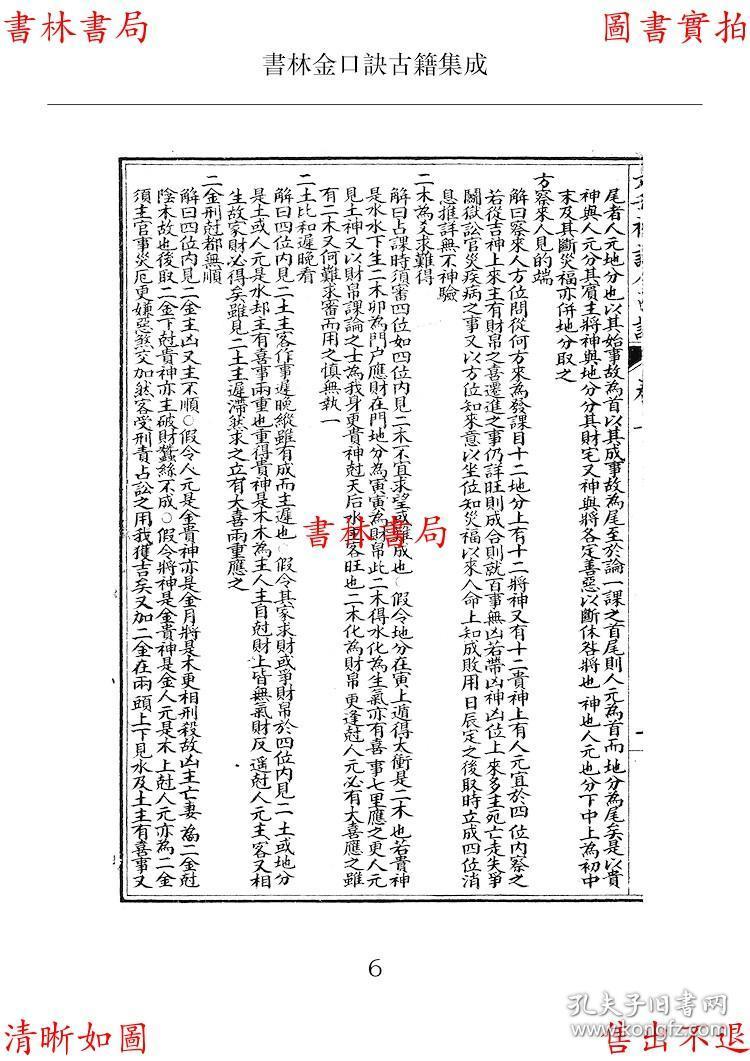 書林書局
圖書實拍
書林金口訣古籍集成
尾者人元地分也以其始事故為首以其成事故為尾至於論一課之首尾則人元為首而地分為尾矣是以貴
神與人元分其賓主將神與地分分其財宅又神與將各定善惡以斷休咎將也神也人元也分下中上為初中
末及其斷災福亦併地分取之
方察來人見的端
解曰察來人方位問從何方來為發課目十二地分上有十二將神又有十二貴神上有人元宜於四位內察之
若從吉神上來主有財帛之喜還進之事仍詳旺則成合則就百事無凶若帶凶神凶位上來多主死亡走失爭
鬭獄訟官災疾病之事又以方位知來意以坐位知災福以來人命上知成敗用日辰定之後取時立成四位消
息推詳無不神驗
二木為爻求難得
解曰占課時須審四位如四位內見二木不宜求望或難成也假令地分在寅上遁得太衝是二木也若貴神
是水水下生二木卯為門户應財在門地分為寅寅為財帛此二木得水化為生氣亦有喜事七里應之更人元
見土神又以財帛課論之土為我身更貴神尅天后水更客旺也二木化為財帛更逢尅人元必有大喜應之雖
有二木又何難求審而用之慎無執一
二土比和遲晚看
解曰四位內見二土主客作事遲晚縱雖有成而主遲也假令其家求財或爭財帛於四位內見二土或地分
是土或人元是水却主有喜事兩重也重得貴神是木木為主人主自尅財上皆無氣財反遥尅人元主客又相
生故家財必得矣雖見二土主遲滯然求之立有大喜兩重應之
二金刑尅都無順
解曰四位內見二金主凶又主不順○假令人元是金貴神亦是金月將是木更相刑殺故凶主亡妻為二金尅
陰木故也後取二金下尅貴神亦主破財蠶絲不成○假令將神是金貴神是金人元是木上尅人元亦為二金
須主官事災厄更嫌惡煞交加然客受刑責占訟之用我獲吉矣又加二金在兩頭上下見水及土主有喜事又
書林書局
6
孔夫子旧書网
www.kongfz.com
清晰如圖
售出不退